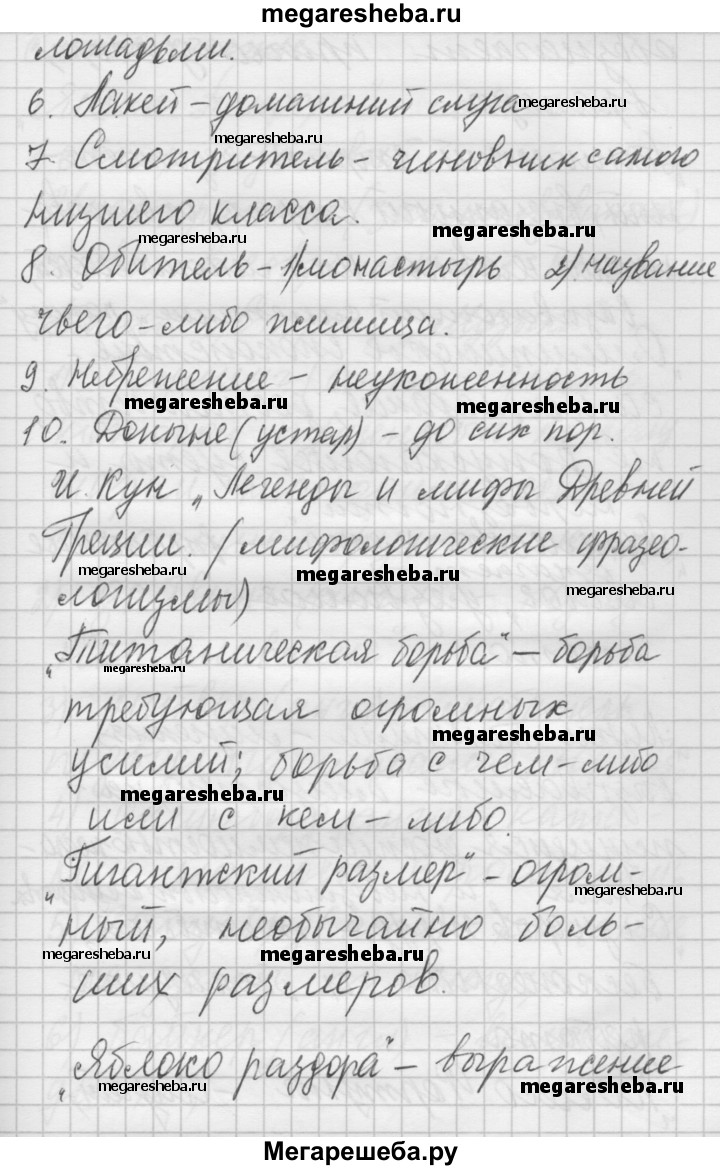 megaresheba.ru
лошадьми.
6. Лакей – домашний слуга
megaresheba.ru
megaresheba.ru
7. Смотритель – чиновник самого
низшего класса.
megaresheba.ru
megaresheba.ru
8. Обитель – 1) монастырь 2) название
чьего-либо жилища.
9. Небрежение – неухоженность
megaresheba.ru
megaresheba.ru
10. Доныне (устар) – до сих пор.
Н. Кун „Легенды и мифы Древней
Греции. (мифологические фразео-
megaresheba.ru
megaresheba.ru
megaresheba.ru
логизмы)
„Титаническая борьба" – борьба
megaresheba.ru
требующая огромных
megaresheba.ru
усилий; борьба с чем-либо
megaresheba.ru
или с кем-либо.
„Гигантский размер" – огром-
megaresheba.ru
ный, необычайно боль-
megaresheba.ru
megaresheba.ru
megaresheba.ru
ших размеров.
„Яблоко раздора" – выражение
megaresheba.ru
megaresheba.ru
Мегарешеба.ру